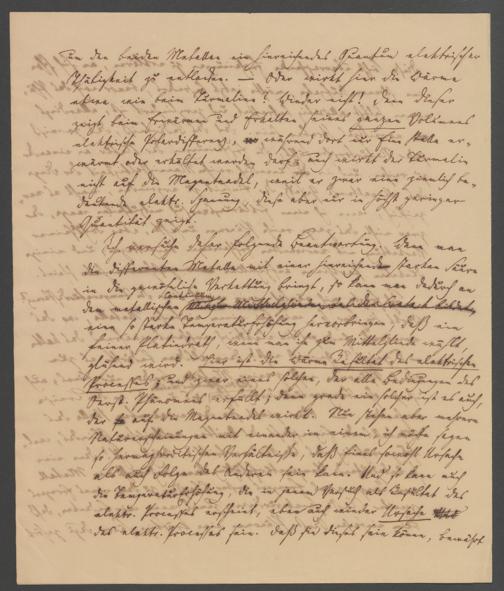 um den beiden Metallen ein hinreichendes Quantum elektrischer
Thätigkeit zu entlocken. — Oder wirkt hier die Wärme
etwa wie beim Turmalin? Wieder nicht! denn dieser
zeigt beim Erwärmen und Erkalten seines ganzen Volumens
elektrische Polardifferenz, während dort nur Eine Stelle er-
wärmt oder erkältet werden darf; auch wirkt der Turmalin
nicht auf die Magnetnadel, weil er zwar eine ziemlich be-
deutende elektr. Spannung, diese aber nur in höchst geringer
Quantität zeigt.
Ich versuche daher folgende Beantwortung. Wenn man
die differenten Metalle mit einer hinreichend starken Säure
in die gewöhnliche Verkettung bringt, so kann man dadurch an
den metallischen
eine so starke Temperaturerhöhung hervorbringen, daß ein
feiner Platindrath, wenn man ihn zum Mittelgliede wählt,
glühend wird. Hier ist die Wärme Resultat des elektrischen
Processes, und zwar eines solchen, der alle Bedingungen des
Phänomens erfüllt; denn grade ein solcher ist es auch,
der auf die Magnetnadel wirkt. Nun stehen aber mehrere
Naturerscheinungen mit einander in einem, ich möchte sagen
so hermaphroditischen Verhältnisse, daß Eines sowohl Ursache
als auch Folge des Anderen sein kann. Und so kann auch
die Temperaturerhöhung, die in jenem Versuch als Resultat des
elektr. Processes erscheint, eben auch wieder Ursache
des elektr. Processes sein. Daß sie dieses sein könne, beweist